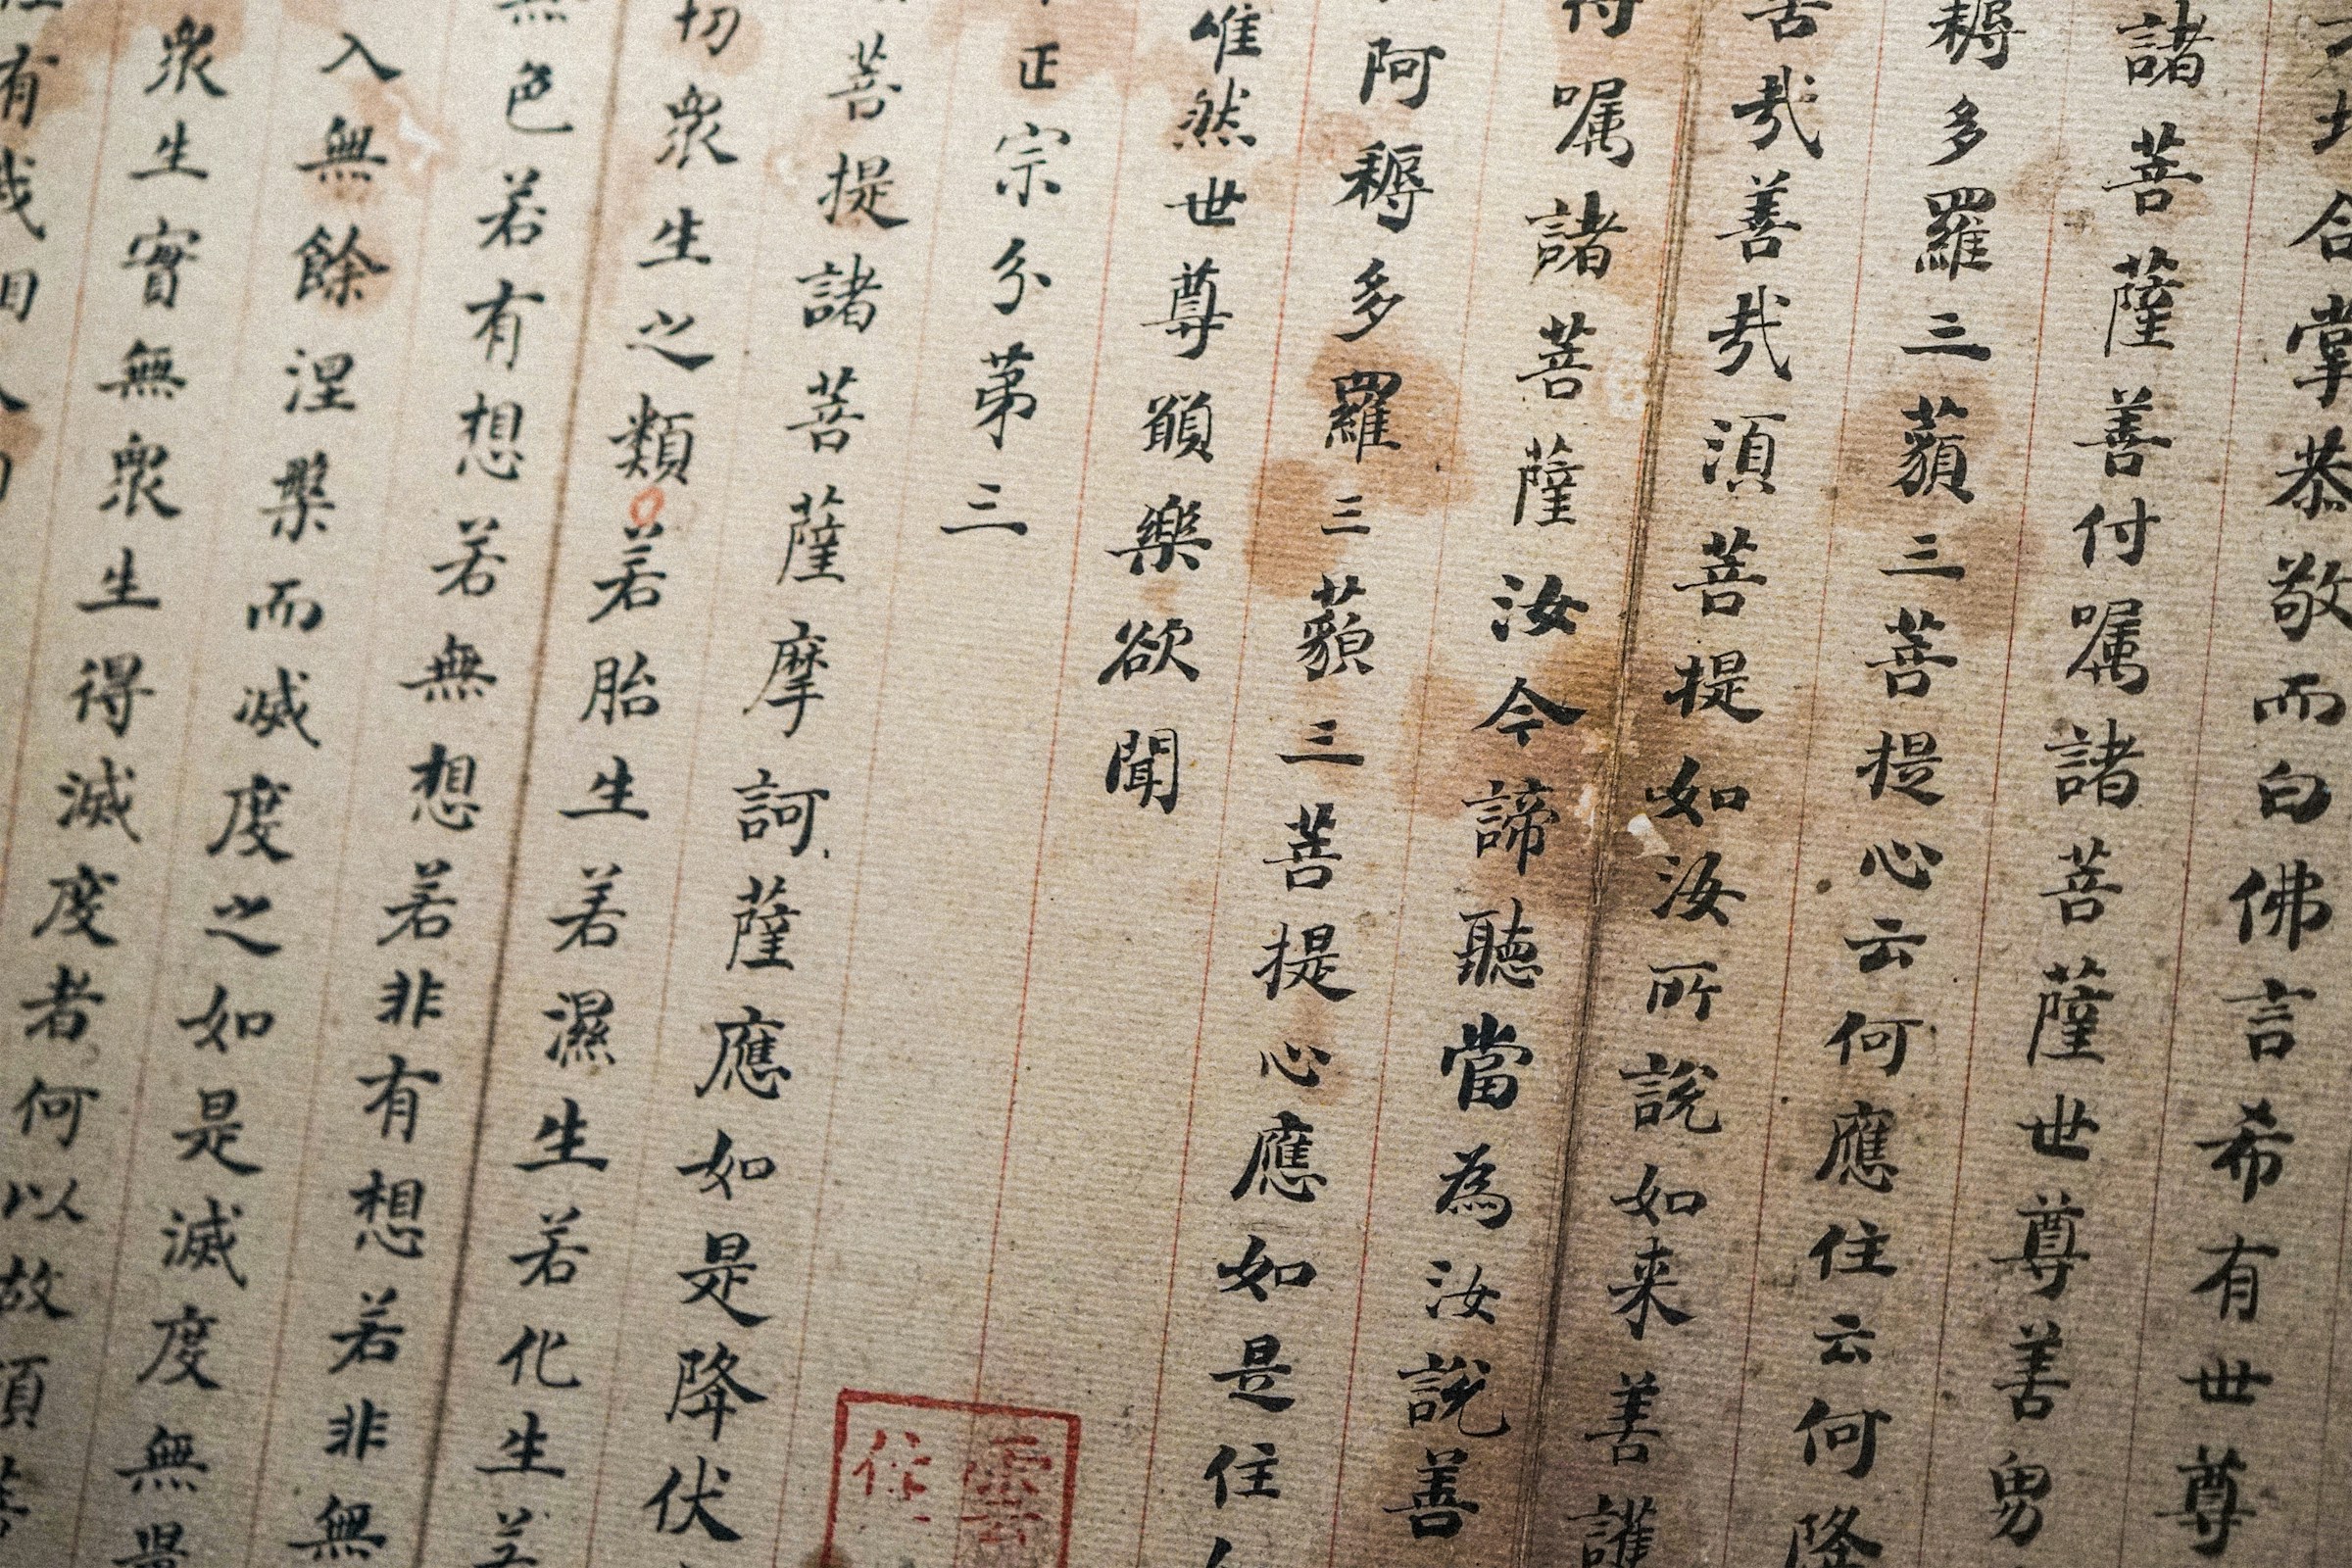 合掌恭敬而白佛言希有世尊
諸菩薩善付嘱諸菩薩世尊善男
耨多羅三藐三菩提心云何應住云何降
善哉善哉須菩提如汝所說如来善護
嘱諸菩薩汝今諦聽當為汝說善
阿耨多羅三藐三菩提心應如是住
唯然世尊願樂欲聞
正宗分第三
菩提諸菩薩摩訶薩應如是降伏
切衆生之類若胎生若濕生若化生若
無色若有想若無想若非有想若非無
入無餘涅槃而滅度之如是滅度無量
衆生實無衆生得滅度者何以故須菩
有我相人